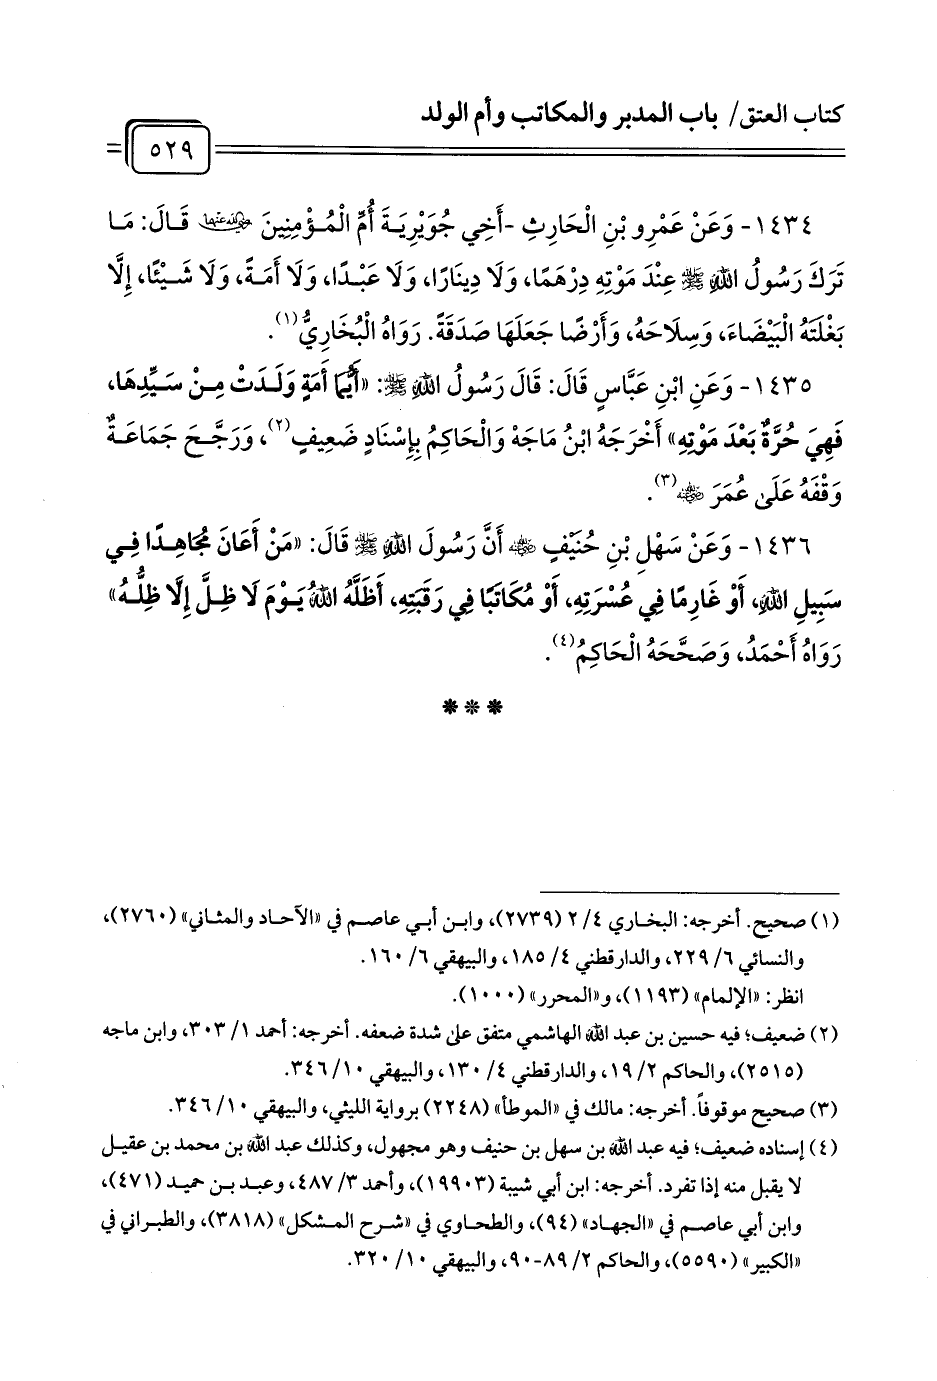 كتاب العتق/ باب المدبر والمكاتب وأم الولد
٥٢٩
١٤٣٤- وَعَنْ عَمْرِو بْنِ الْحَارِثِ -أَخِي جُوَيْرِيَةَ أُمِّ الْمُؤْمِنِينَ رضي الله عنهما قَالَ: مَا
تَرَكَ رَسُولُ اللهِ ﷺ عِنْدَ مَوْتِهِ دِرْهَمًا، وَلَا دِينَارًا، وَلَا عَبْدًا، وَلَا أَمَةً، وَلَا شَيْئًا، إِلَّا
بَغْلَتَهُ الْبَيْضَاءَ، وَسِلَاحَهُ، وَأَرْضًا جَعَلَهَا صَدَقَةً. رَوَاهُ الْبُخَارِيُّ(١).
١٤٣٥- وَعَنِ ابْنِ عَبَّاسٍ قَالَ: قَالَ رَسُولُ اللهِ ﷺ: «أَيُّمَا أَمَةٍ وَلَدَتْ مِنْ سَيِّدِهَا،
فَهِيَ حُرَّةٌ بَعْدَ مَوْتِهِ» أَخْرَجَهُ ابْنُ مَاجَهْ وَالْحَاكِمُ بِإِسْنَادٍ ضَعِيفٍ(٢)، وَرَجَّحَ جَمَاعَةٌ
وَقْفَهُ عَلَى عُمَرَ رضي الله عنه(٣).
١٤٣٦- وَعَنْ سَهْلِ بْنِ حُنَيْفٍ رضي الله عنه أَنَّ رَسُولَ اللهِ ﷺ قَالَ: «مَنْ أَعَانَ مُجَاهِدًا فِي
سَبِيلِ اللهِ، أَوْ غَارِمًا فِي عُسْرَتِهِ، أَوْ مُكَاتَبًا فِي رَقَبَتِهِ، أَظَلَّهُ اللهُ يَوْمَ لَا ظِلَّ إِلَّا ظِلُّهُ»
رَوَاهُ أَحْمَدُ، وَصَحَّحَهُ الْحَاكِمُ(٤).
* * *
(١) صحيح. أخرجه: البخاري ٤/ ٢ (٢٧٣٩)، وابن أبي عاصم في «الآحاد والمثاني» (٢٧٦٠)،
والنسائي ٦/ ٢٢٩، والدارقطني ٤/ ١٨٥، والبيهقي ٦/ ١٦٠.
انظر: «الإلمام» (١١٩٣)، و«المحرر» (١٠٠٠).
(٢) ضعيف؛ فيه حسين بن عبد الله الهاشمي متفق على شدة ضعفه. أخرجه: أحمد ١/ ٣٠٣، وابن ماجه
(٢٥١٥)، والحاكم ٢/ ١٩، والدارقطني ٤/ ١٣٠، والبيهقي ١٠/ ٣٤٦.
(٣) صحيح موقوفاً. أخرجه: مالك في «الموطأ» (٢٢٤٨) برواية الليثي، والبيهقي ١٠/ ٣٤٦.
(٤) إسناده ضعيف؛ فيه عبد الله بن سهل بن حنيف وهو مجهول، وكذلك عبد الله بن محمد بن عقيل
لا يقبل منه إذا تفرد. أخرجه: ابن أبي شيبة (١٩٩٠٣)، وأحمد ٣/ ٤٨٧، وعبد بن حميد (٤٧١)،
وابن أبي عاصم في «الجهاد» (٩٤)، والطحاوي في «شرح المشكل» (٣٨١٨)، والطبراني في
«الكبير» (٥٥٩٠)، والحاكم ٢/ ٨٩-٩٠، والبيهقي ١٠/ ٣٢٠.